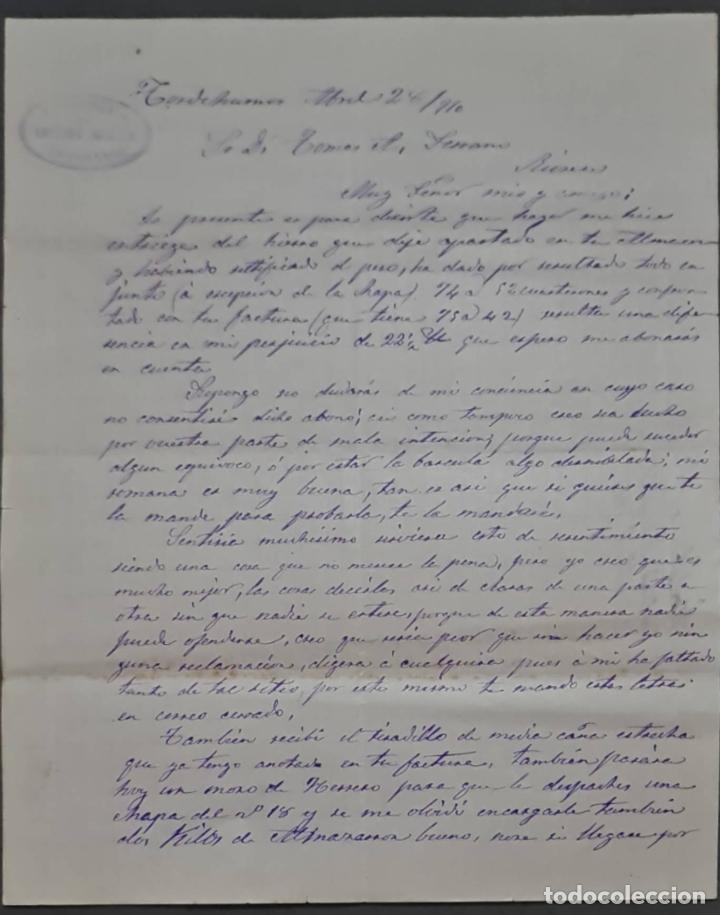 Tordehumos Abril 24/910
Sr Dn Tomas A. Serrano
Rioseco
Muy Señor mio y amigo;
La presente es para decirte que hayer me hice
entrega del hierro que deje apartado en tu Almacen
y habiendo retificado el peso, ha dado por resultado todo en
junto (á escepción de la chapa) 74 a y confron
tado con tu factura (que tiene 75 a 42) resulta una dife
rencia en mi perjuicio de 22½ que espero me abonarás
en cuenta
Supongo no dudarás de mi conciencia en cuyo caso
no consentiré dicho abono; asi como tampoco creo sea hecho
por vuestra parte de mala intencion; porque puede suceder
algun equivoco, ó por estar la bascula algo desnibelada; mi
romana es muy buena, tan es asi que si quieres que te
la mande para probarla, te la mandaré.
Sentiria muchisimo sirviera esto de resentimiento
siendo una cosa que no merece la pena, pero yo creo que es
mucho mejor, las cosas decirlas asi de claras de una parte a
otra sin que nadie se entere, porque de esta manera nadie
puede ofenderse, creo que seria peor que sin hacer yo nin
guna reclamación, digera á cualquiera pues á mi ha faltado
tanto de tal sitio, por esto mismo te mando estas letras
en correo cerrado.
Tambien recibi el de media caña estrecha
que ya tengo anotado en tu factura, tambien pasára
hoy un mozo de Herrero para que le despaches una
chapa del nº 18 y se me olvidó encargarle tambien
dos Kilos de Almazarron bueno, si llegare por
todocoleccion
todocoleccion.net